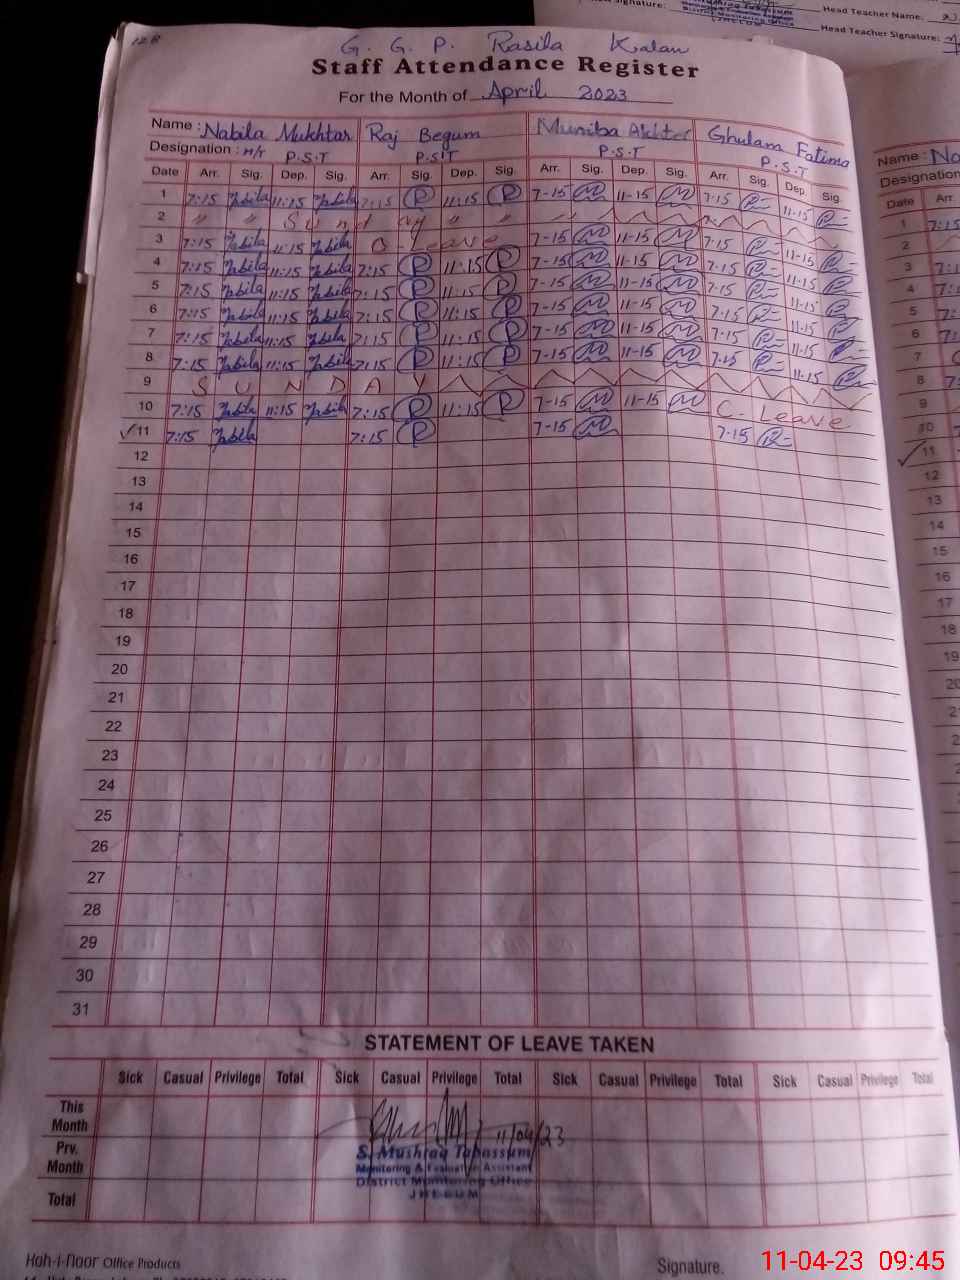 Signature:
Head Teacher Name.
Head Teacher Signature:
128
G. G. P. Rasila Kalan
Staff Attendance Register
For the Month of April 2023
Name : Nabila Mukhtar Raj Begum Muniba Akhter Ghulam Fatima
Designation : H/T P.S.T P.S.T P.S.T P.S.T
Date Arr. Sig. Dep. Sig. Arr. Sig. Dep. Sig. Arr. Sig. Dep. Sig. Arr. Sig. Dep. Sig.
1 7:15 Nabila 11:15 Nabila 7:15 R 11:15 R 7-15 M 11-15 M 7-15 11-15
2 " " Sunday " "
3 7:15 Nabila 11:15 Nabila C-Leave 7-15 M 11-15 M 7-15 11-15
4 7:15 Nabila 11:15 Nabila 7:15 R 11:15 R 7-15 M 11-15 M 7-15 11-15
5 7:15 Nabila 11:15 Nabila 7:15 R 11:15 R 7-15 M 11-15 M 7-15 11-15
6 7:15 Nabila 11:15 Nabila 7:15 R 11:15 R 7-15 M 11-15 M 7-15 11-15
7 7:15 Nabila 11:15 Nabila 7:15 R 11:15 R 7-15 M 11-15 M 7-15 11-15
8 7:15 Nabila 11:15 Nabila 7:15 R 11:15 R 7-15 M 11-15 M 7-15 11-15
9 SUNDAY
10 7:15 Nabila 11:15 Nabila 7:15 R 11:15 R 7-15 M 11-15 M C. Leave
✓11 7:15 Nabila 7:15 R 7-15 M 7-15
12
13
14
15
16
17
18
19
20
21
22
23
24
25
26
27
28
29
30
31
STATEMENT OF LEAVE TAKEN
Sick Casual Privilege Total Sick Casual Privilege Total Sick Casual Privilege Total Sick Casual Privilege Total
This Month
11/04/23
Prv. Month
S. Mushtaq Tabassum
Monitoring & Evaluation Assistant
District Monitoring Office
JHELUM
Total
Koh-i-noor Office Products
Signature.
Name : Na
Designation
Date Arr
1 7:15
2
3
4
5
6
7
8
9
10
✓11
12
13
14
15
16
17
18
19
11-04-23 09:45